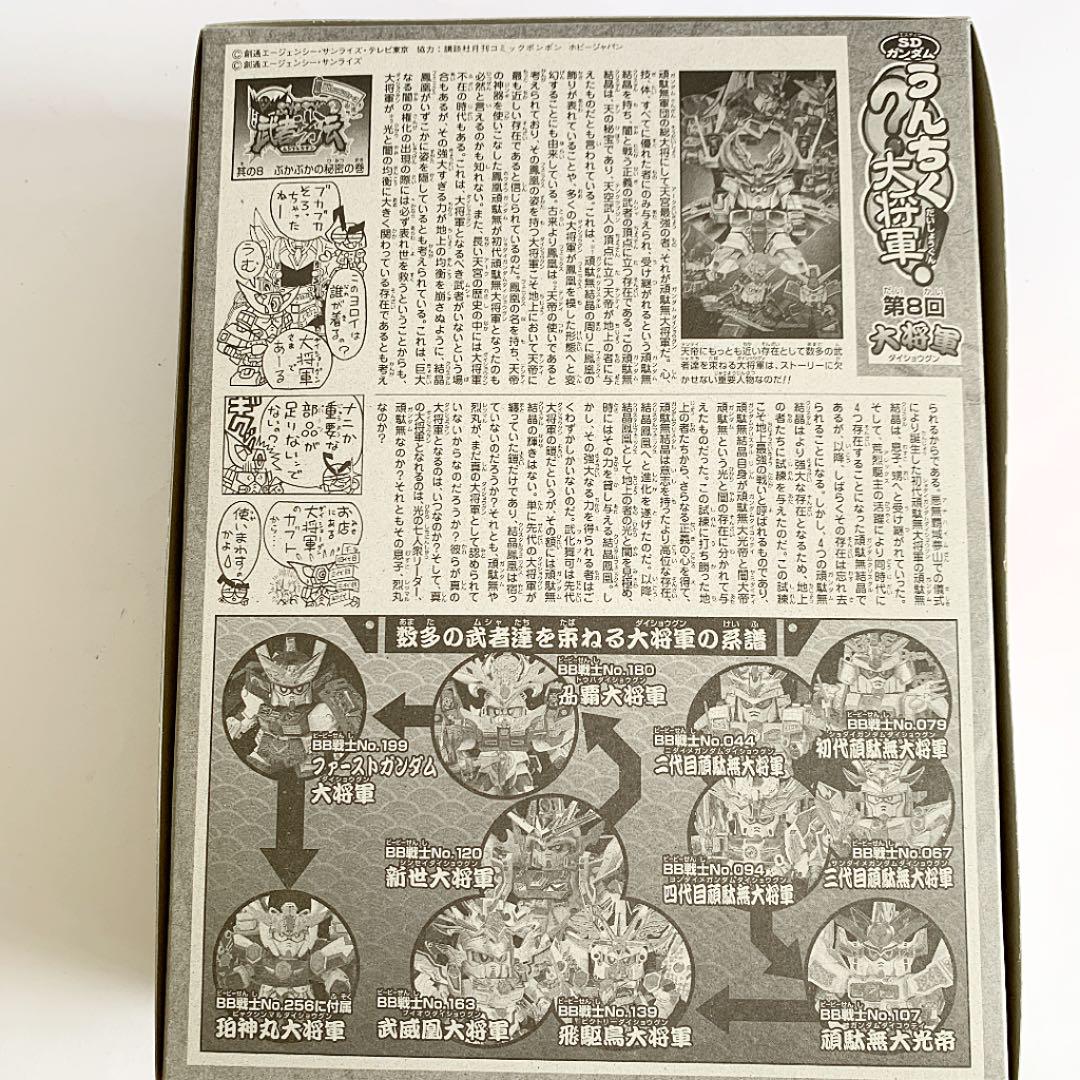 ©創通エージェンシー・サンライズ・テレビ東京　協力：講談社月刊コミックボンボン　ホビージャパン
©創通エージェンシー・サンライズ
SD
ガンダム
うんちく
大将軍!
だいしょうぐん
第8回
だい かい
大将軍
ダイショウグン
天帝にもっとも近い存在として数多の武
者達を束ねる大将軍は、ストーリーに欠
かせない重要人物なのだ!!
頑駄無軍団の総大将にして天宮最強の者、それが頑駄無大将軍だ。心、
技、体、すべてに優れた者にのみ与えられ、受け継がれるという頑駄無
結晶を持ち、闇と戦う正義の武者の頂点に立つ存在である。この頑駄無
結晶は、天の秘宝であり、天空武人の頂点に立つ天帝が地上の者に与
えたものだとも言われている。これは、頑駄無結晶の周りに鳳凰の
飾りが表れていることや、多くの大将軍が鳳凰を模した形態へと変
幻することにも由来している。古来より鳳凰は、天帝の使いであると
考えられており、その鳳凰の姿を持つ大将軍こそ地上において天帝に
最も近しい存在であると信じられているのだ。鳳凰の名を持ち、天帝
の神器を使いこなした鳳凰頑駄無が初代頑駄無大将軍となったのも
必然と言えるのかも知れない。また、長い天宮の歴史の中には大将軍
不在の時代もある。これは、大将軍となるべき武者がいないという場
合もあるが、その強大すぎる力が地上の均衡を崩さぬように、結晶
鳳凰がいずこかに姿を隠しているとも考えられている。これは、巨大
なる闇の権化の出現の際には必ず表れ世を救うということからも、
大将軍が、光と闇の均衡に大きく関わっている存在であるとも考え
られるからである。悪無覇域帝山での儀式
により誕生した初代頑駄無大将軍の頑駄無
結晶は、息子、甥へと受け継がれていった。
そして、荒烈駆主の活躍により同時代に
4つ存在することになった頑駄無結晶で
あるが、以降、しばらくその存在は忘れ去
られることになる。しかし、4つの頑駄無
結晶はより強大な存在となるため、地上
の者たちに試練を与えたのだ。この試練
こそ地上最強の戦いと呼ばれるものであり、
頑駄無結晶自身が頑駄無大光帝と闇大帝
頑駄無という光と闇の存在に分かれて与
えたものだった。この試練に打ち勝った地
上の者たちから、さらなる正義の心を得て、
頑駄無結晶は意志を持ったより高位な存在、
結晶鳳凰へと進化を遂げたのだ。以降、
結晶鳳凰として地上の者の光と闇を見極め、
時にはその力を貸し与える結晶鳳凰。し
かし、その強大なる力を得られる者はご
くわずかしかいないのだ。武化舞可は先代
大将軍の鎧だというが、その額には頑駄無
結晶の輝きはない。単に先代の大将軍が
纏っていた鎧だけであり、結晶鳳凰は宿っ
ていないのだろうか?それとも、頑駄無や
烈丸が、まだ真の大将軍として認められて
いないからなのだろうか?彼らが真の
大将軍となるのは、いつなのか?そして、真
の大将軍となれるのは、光の七人衆リーダー、
頑駄無なのか?それともその息子、烈丸
なのか?
其の8　ぶかぶかの秘密の巻
ブカブカ
そろっ
ちゃった
ねー
うむ
このヨロイは
誰が着るの?
大将軍
さまで
あーる
ナニか
重要な
部品が
足りないンで
ないの?
ギクッ
お店
にある
大将軍
のカブト
から…
使いまわす?
数多の武者達を束ねる大将軍の系譜
BB戦士No.079
初代頑駄無大将軍
BB戦士No.044
二代目頑駄無大将軍
BB戦士No.067
三代目頑駄無大将軍
BB戦士No.094
四代目頑駄無大将軍
BB戦士No.107
頑駄無大光帝
BB戦士No.139
飛駆鳥大将軍
BB戦士No.163
武威凰大将軍
BB戦士No.120
新世大将軍
BB戦士No.180
トウハダイショウグン
大将軍
BB戦士No.199
ファーストガンダム
大将軍
BB戦士No.256に付属
ビャクシンマルダイショウグン
珀神丸大将軍